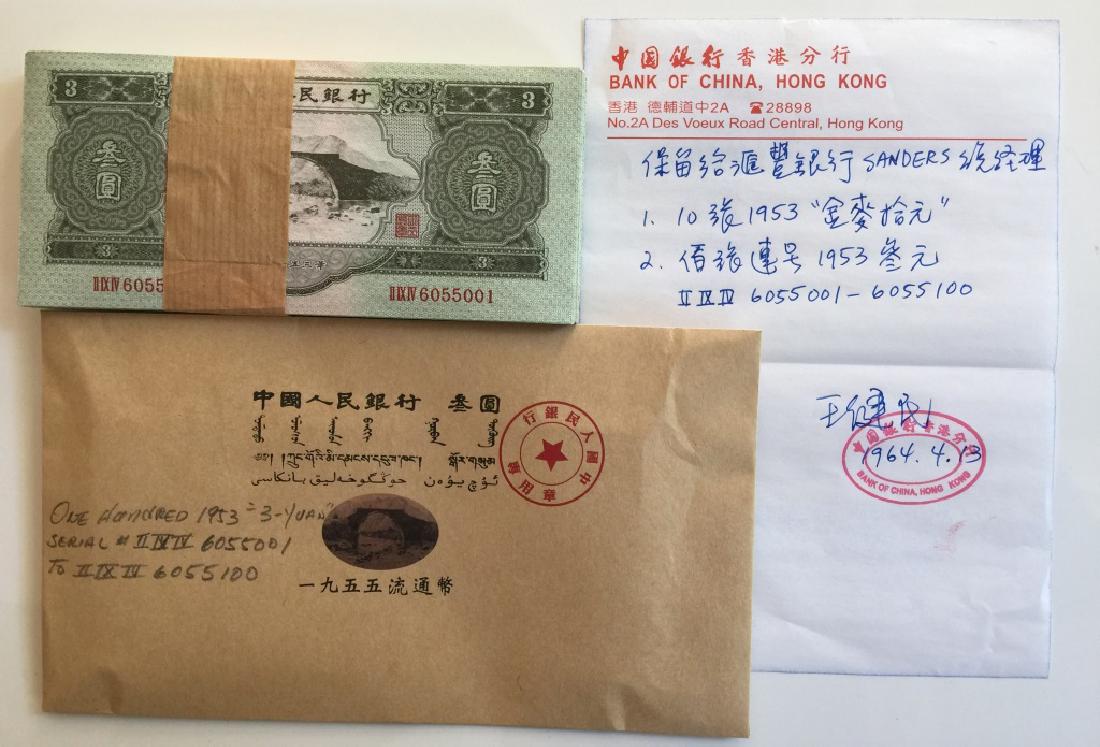 3
民銀行
3
叁圓
叁圓
3
3
ⅡⅨⅣ 6055
ⅡⅨⅣ 6055001
中国銀行香港分行
BANK OF CHINA, HONG KONG
香港 德輔道中2A ☎28898
No.2A Des Voeux Road Central, Hong Kong
保留给滙豐銀行 SANDERS 總经理
1. 10 張 1953 "金麥拾元"
2. 佰張連号 1953 叁元
ⅡⅨⅣ 6055001-6055100
王健民
中国銀行香港分行
1964.4.13
BANK OF CHINA, HONG KONG
中國人民銀行 叁圓
中國人民銀行
專用章
ONE HUNDRED 1953 "3-YUAN"
SERIAL # ⅡⅨⅣ 6055001
TO ⅡⅨⅣ 6055100
一九五五流通幣